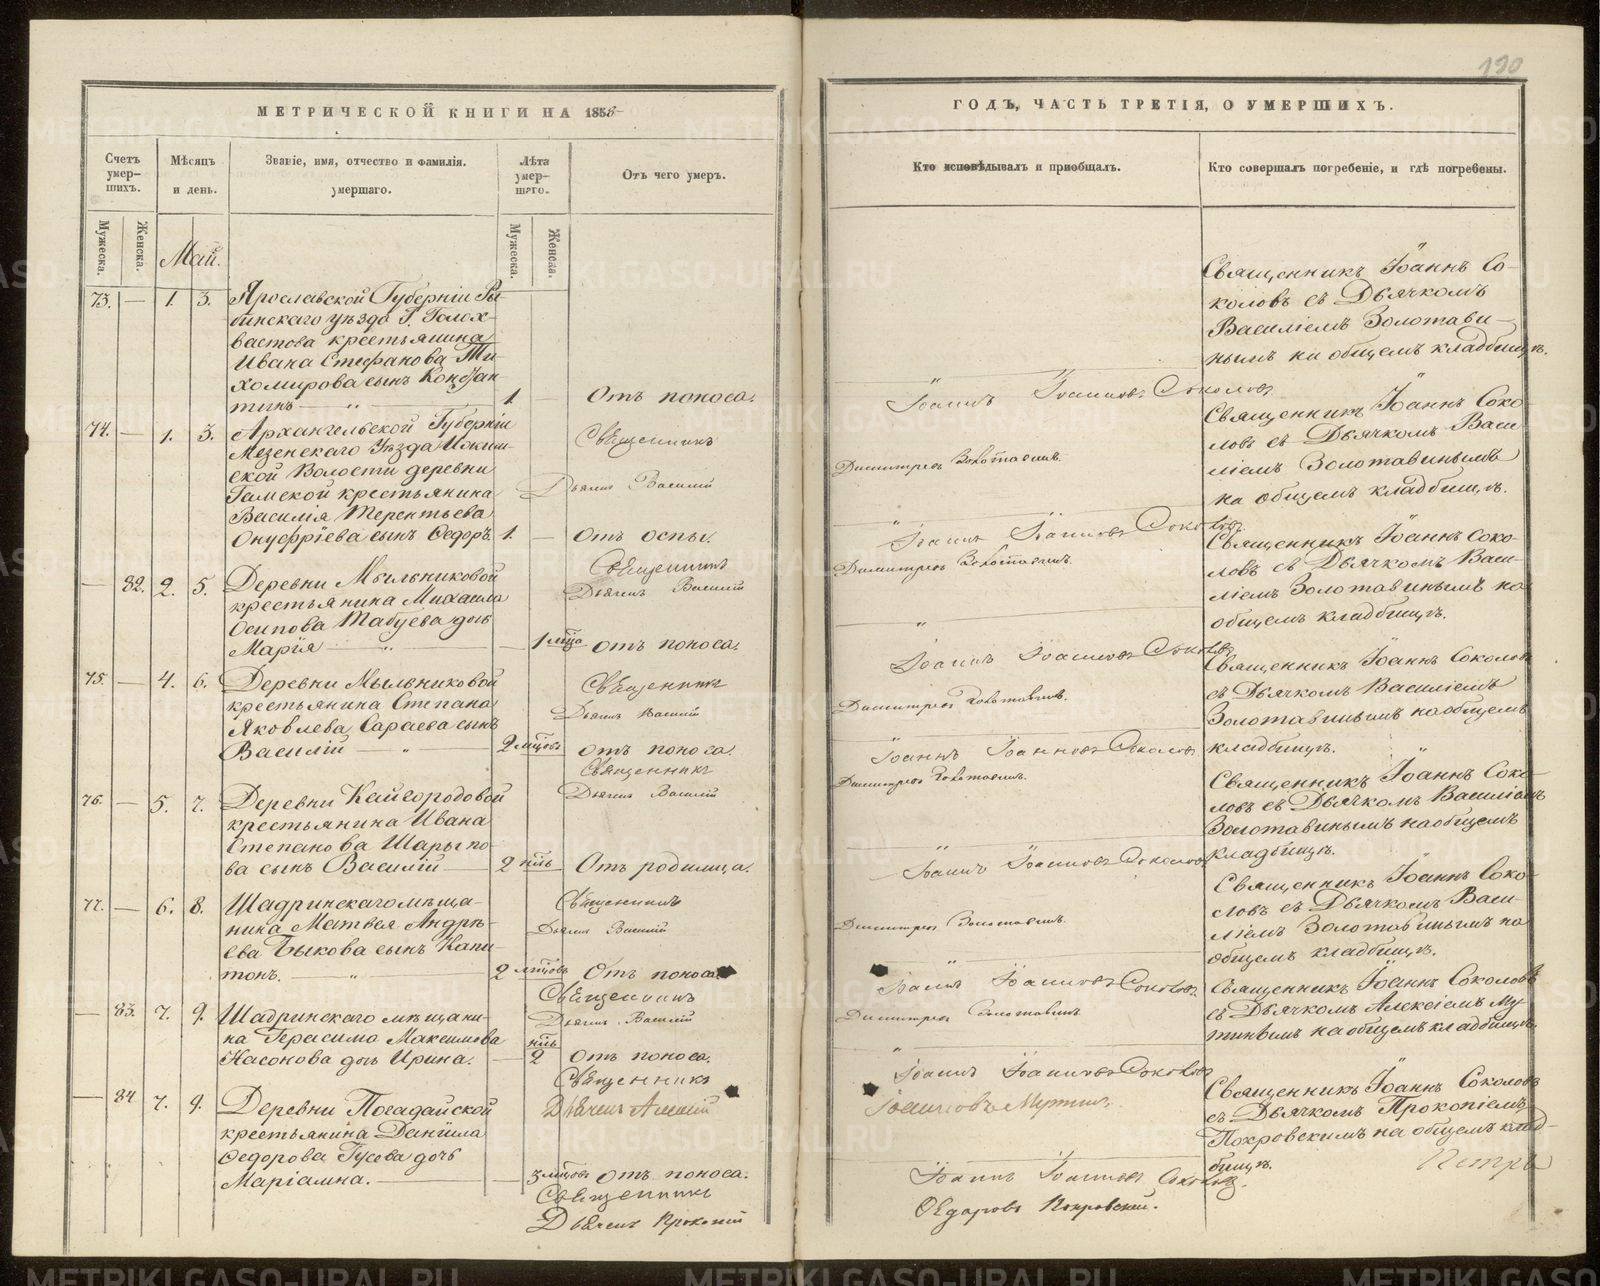 130
МЕТРИЧЕСКОЙ КНИГИ НА 1858
ГОДЪ, ЧАСТЬ ТРЕТІЯ, О УМЕРШИХЪ.
Счетъ умерших.
Мѣсяцъ и день.
Званіе, имя, отчество и фамилія. умершаго.
Лѣта умершаго.
Отъ чего умеръ.
Кто исповѣдывалъ и приобщалъ.
Кто совершалъ погребеніе, и гдѣ погребены.
Мужеска.
Женска.
Мужеска.
Женска.
Май.
73. — 1. 3. Ярославской Губерніи Ры-
бинскаго уѣзда Г. Голох-
вастова крестьянина
Ивана Стефанова Ти-
хомирова сынъ Констан
тинъ — 1 — Отъ поноса.
Священникъ Іоаннъ Со-
коловъ съ Дьячкомъ
Василіемъ Золотави-
нымъ на общемъ кладбищѣ.
Священникъ Іоаннъ Іоанновъ Соколовъ
Дьячекъ Василій Димитріевъ Золотавинъ.
74. — 1. 3. Архангельской Губерніи
Мезенскаго Уѣзда
ской Волости деревни
Гамской крестьянина
Василія Терентьева
Онуфріева сынъ Ѳедоръ. 1. — Отъ оспы.
Священникъ Іоаннъ Соко-
ловъ съ Дьячкомъ Васи-
ліемъ Золотавинымъ
на общемъ кладбищѣ.
Священникъ Іоаннъ Іоанновъ Соколовъ
Дьячекъ Василій Димитріевъ Золотавинъ.
— 82. 2. 5. Деревни Мыльниковой
крестьянина Михаила
Осипова Табуева дочь
Марія — 1 мца отъ поноса.
Священникъ Іоаннъ Соко-
ловъ съ Дьячкомъ Васи-
ліемъ Золотавинымъ на
общемъ кладбищѣ.
Священникъ Іоаннъ Іоанновъ Соколовъ
Дьячекъ Василій Димитріевъ Золотавинъ.
75. — 4. 6. Деревни Мыльниковой
крестьянина Степана
Яковлева Сараева сынъ
Василій — 2 мцовъ отъ поноса.
Священникъ Іоаннъ Соколовъ
съ Дьячкомъ Василіемъ
Золотавинымъ на общемъ
кладбищѣ.
Священникъ Іоаннъ Іоанновъ Соколовъ
Дьячекъ Василій Димитріевъ Золотавинъ.
76. — 5. 7. Деревни Кайгородовой
крестьянина Ивана
Степанова Шарыпо-
ва сынъ Василій — 2 нль Отъ родимца.
Священникъ Іоаннъ Соко-
ловъ съ Дьячкомъ Василіемъ
Золотавинымъ на общемъ
кладбищѣ.
Священникъ Іоаннъ Іоанновъ Соколовъ
Дьячекъ Василій Димитріевъ Золотавинъ.
77. — 6. 8. Шадринскаго мѣща-
нина Матвея Андрѣ-
ева Быкова сынъ Капи-
тонъ. — 2 мцовъ Отъ поноса
Священникъ Іоаннъ Соко-
ловъ съ Дьячкомъ Васи-
ліемъ Золотавинымъ на
общемъ кладбищѣ.
Священникъ Іоаннъ Іоанновъ Соколовъ.
Дьячекъ Василій Димитріевъ Золотавинъ
— 83. 7. 9. Шадринскаго мѣщани-
на Герасима Максимова
Насонова дочь Ирина. — 2 нль отъ поноса.
Священникъ Іоаннъ Соколовъ
съ Дьячкомъ Алексіемъ Му-
тинымъ на общемъ кладбищѣ.
Священникъ Іоаннъ Іоанновъ Соколовъ
Дьячекъ Алексій Іоанновъ Мутинъ.
— 84 7. 9. Деревни Погадайской
крестьянина Даніила
Ѳедорова Гусева дочь
Маріамна. — 3 мцовъ отъ поноса.
Священникъ Іоаннъ Соколовъ
съ Дьячкомъ Прокопіемъ
Покровскимъ на общемъ клад-
бищѣ.
Священникъ Іоаннъ Іоанновъ Соколовъ.
Дьячекъ Прокопій Ѳедоровъ Покровскій.
METRIKI.GASO-URAL.RU